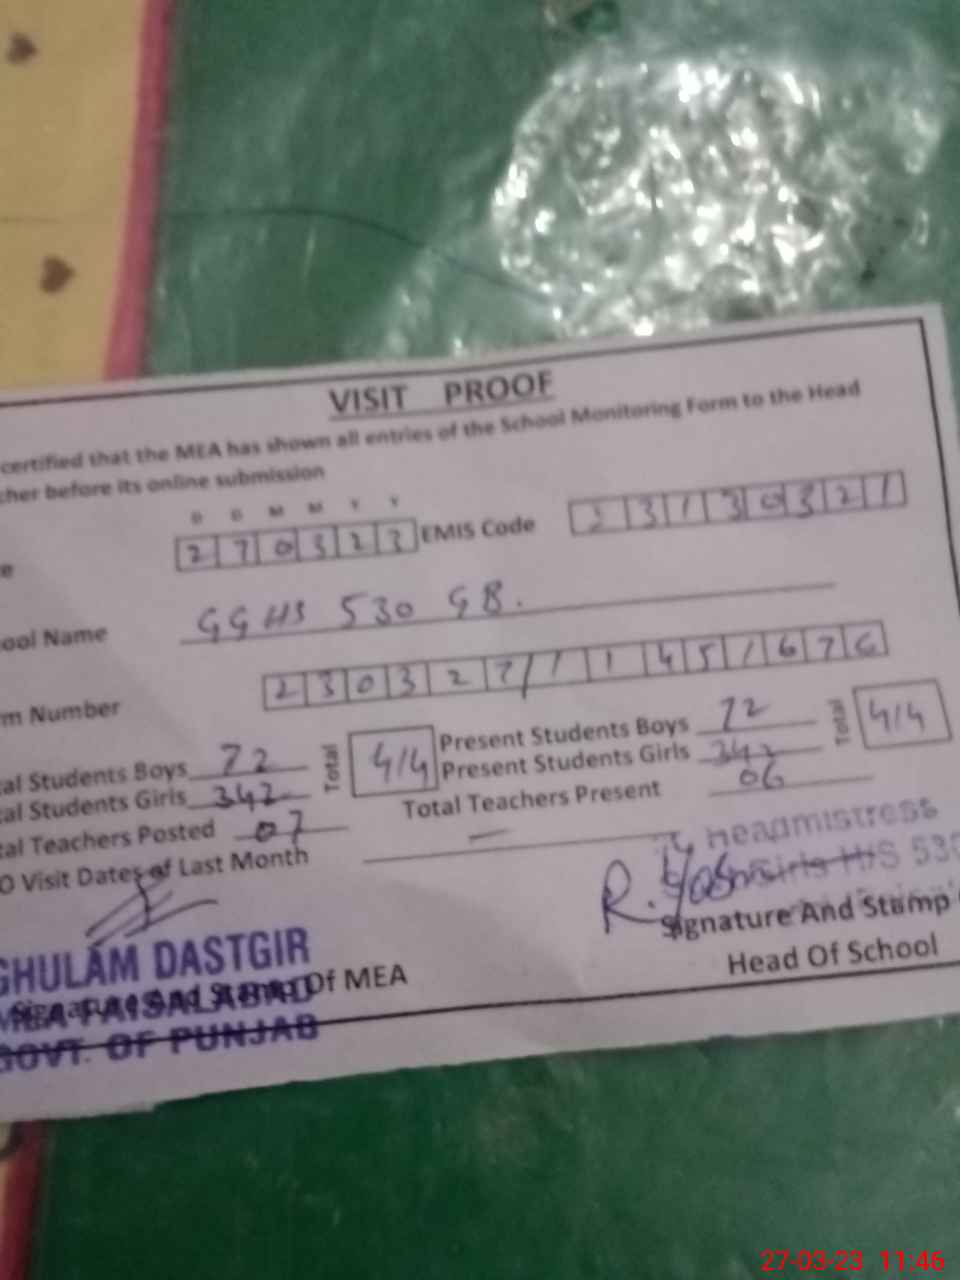 VISIT PROOF
certified that the MEA has shown all entries of the School Monitoring Form to the Head
cher before its online submission
D D M M Y Y
e 270323 EMIS Code 23130321
ool Name GGHS 530 GB.
rm Number 230327/11451676
al Students Boys 72 Total 414 Present Students Boys 72 Total 414
al Students Girls 342 Present Students Girls 342
tal Teachers Posted 07 Total Teachers Present 06
O Visit Dates of Last Month —
Headmistress
H/S 530
R.
Signature And Stamp
Head Of School
GHULAM DASTGIR
Signature And Stamp Of MEA
MEA FAISALABAD
GOVT. OF PUNJAB
27-03-23 11:46